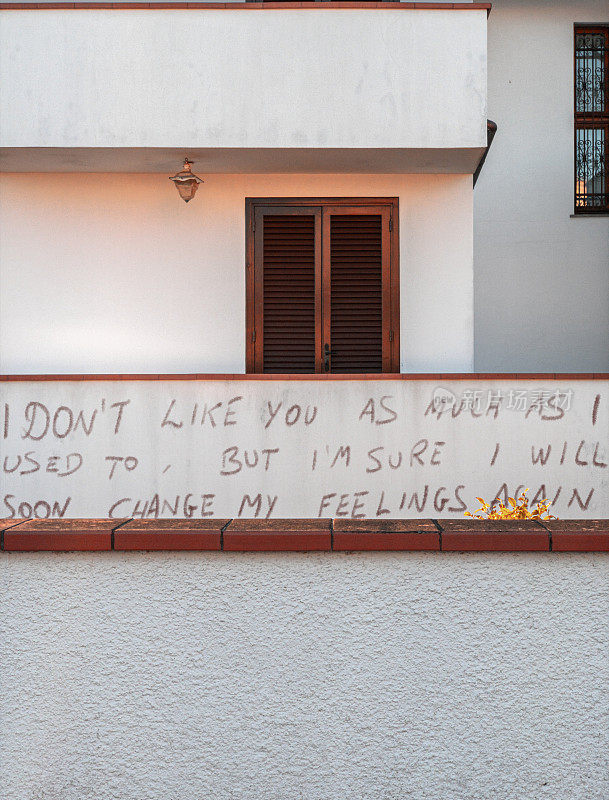 I DON'T LIKE YOU AS MUCH AS I
USED TO, BUT I'M SURE I WILL
SOON CHANGE MY FEELINGS AGAIN
新片场